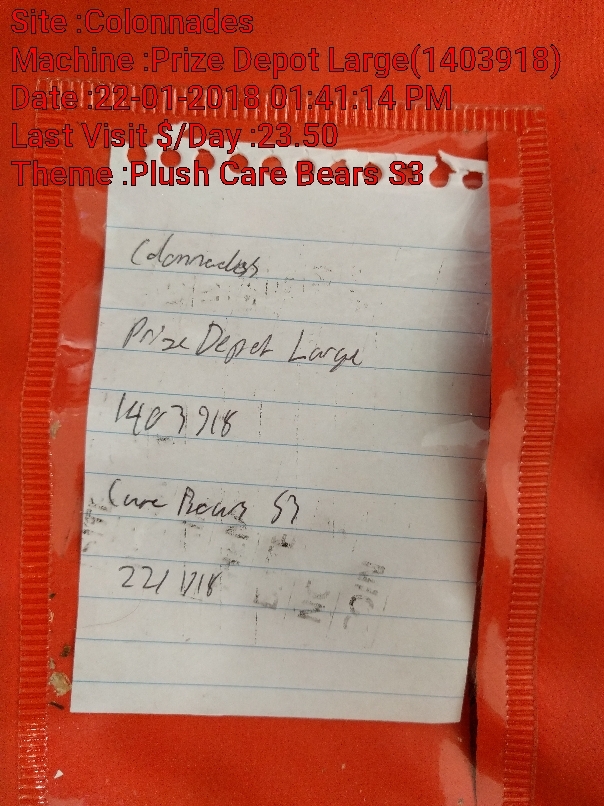 Site :Colonnades
Machine :Prize Depot Large(1403918)
Date :22-01-2018 01:41:14 PM
Last Visit $/Day :23.50
Theme :Plush Care Bears S3
Colonnades
Prize Depot Large
1403918
Care Bears S3
22/1/18